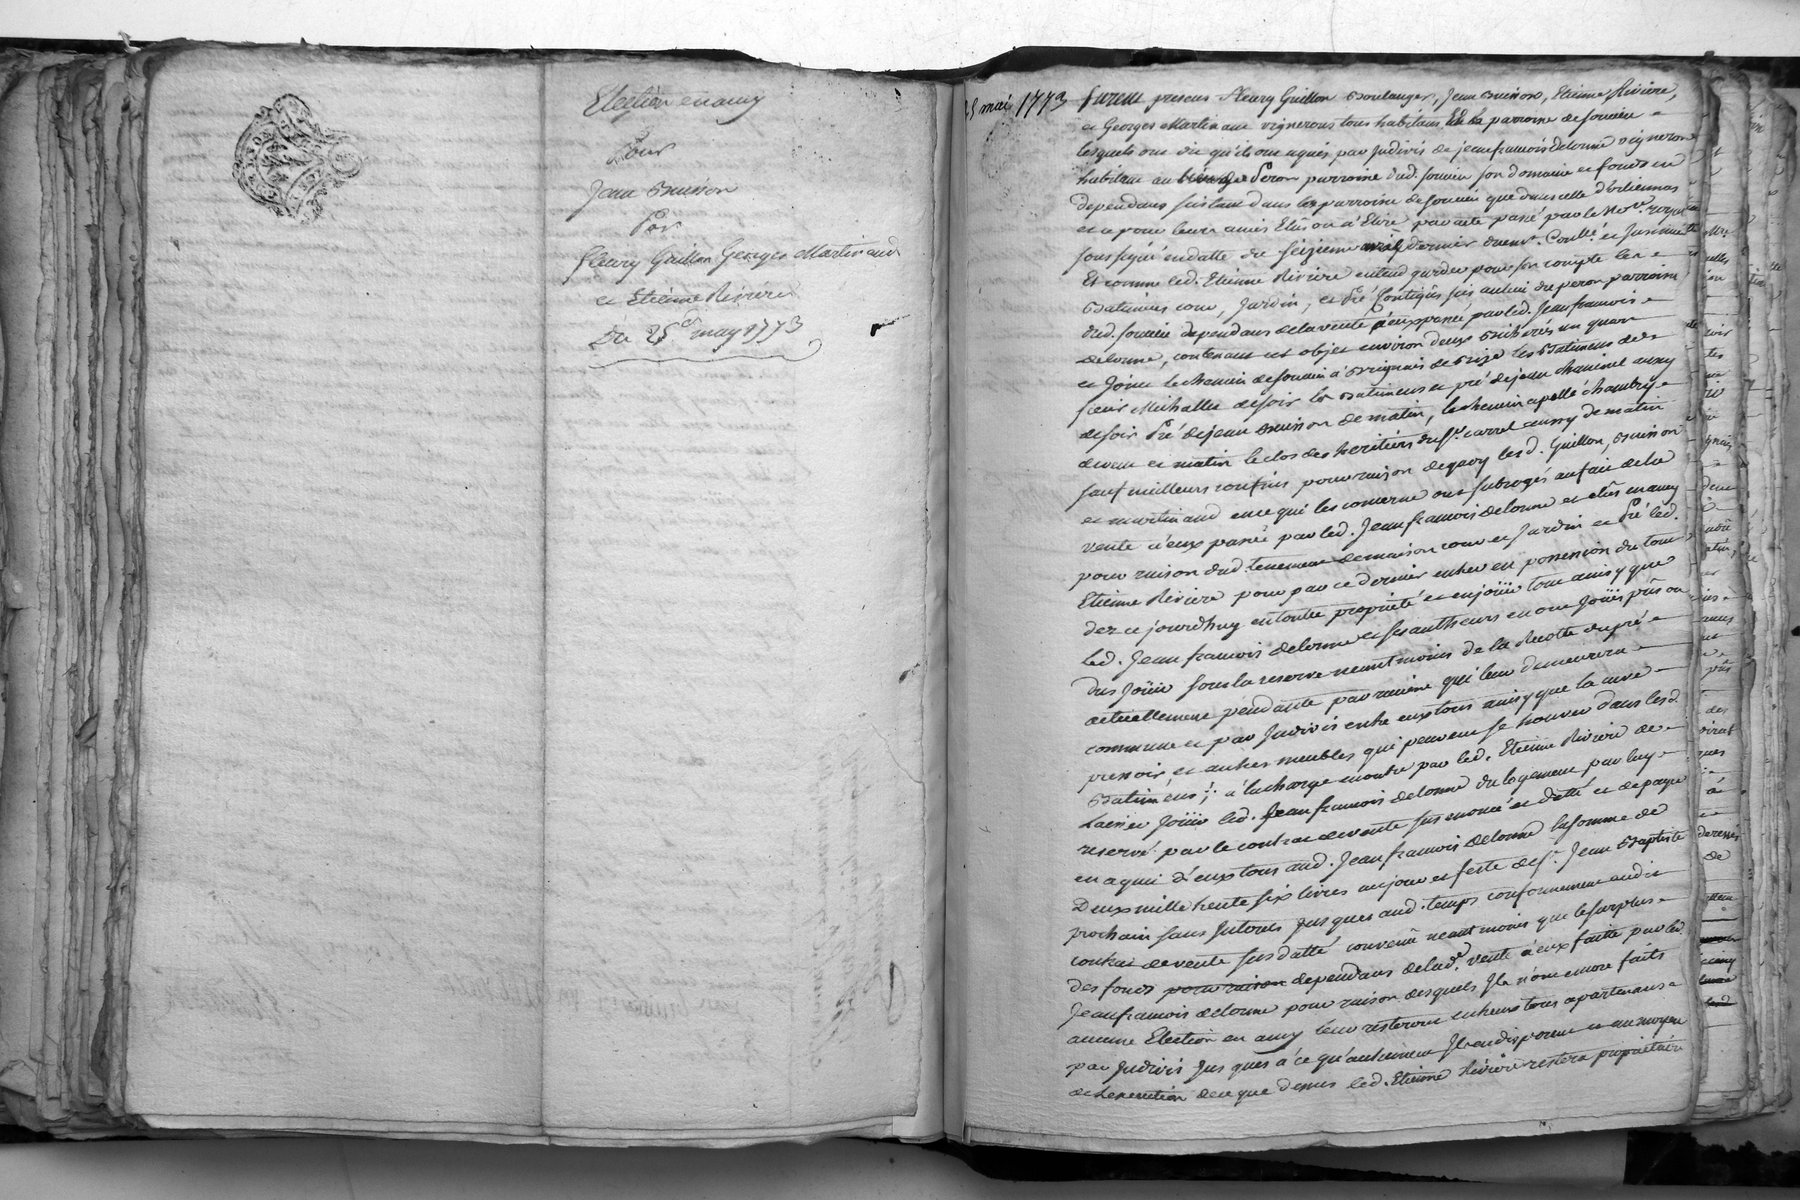 Election en amy
Pour
Jean Buisson
Par
fleury Guillon Georges Martinaud
et Etienne Riviere
Du 25e may 1773
25 mai 1773
furent presens fleury Guillon Boulanger, Jean Buisson, Etienne Riviere,
et Georges Martinaud vignerons tous habitans de la parroisse de soucieu
lesquels ont dit qu'ils ont aquis par Judivis de jean francois delorme vigneron
habitant au Peron parroisse dud. soucieu son domaine et fonds en
dependans scituant dans les parroisse de soucieu que dans celle d'orlienas
et ce pour leurs amis Elûs ou a Elire par acte passé par le Nore. royal
soussigné en datte du seizieme avril dernier duemt. Conllé. et Jnsinué
Et comme led. Etienne Riviere entend garder pour son compte les
Batimens cour, Jardin, et Pré Contigûs sis au lieu du peron parroisse
dud. soucieu dependans de la vente a eux passée par led. Jean francois
delorme, contenant cet objet environ deux Bicherés un quart
et Joint le chemin de soucieu à Brignais de Bize les Batimens des
sieur Michallet de soir les Batimens et pré de jean chaninel aussy
de soir Pré de jean Buisson de matin, le chemin apellé chambry
de vent et matin le clos des heritiers du sr. carret aussy de matin
sauf meilleurs confins pour raison de quoy lesd. Guillon, Buisson
et martinaud en ce qui les concerne ont subrogés au fait de la
vente à eux passée par led. Jean francois delorme et elûs en amy
pour raison dud. tenement de maison cour et Jardin et Pré led.
Etienne Riviere pour par ce dernier entrer en possession du tout
dez ce jourd'huy en toutte proprieté et en joüir tout ainsy que
led. Jean francois delorme et ses autheurs en ont Joüis pûs ou
dus Joüir sous la reserve neantmoins de la Recolte du pré
actuellement pendante par racine qui leur demeurera
commune et par Judivis entre eux tous ainsy que la cuve
pressoir, et autres meubles qui peuvent se trouver dans lesd.
Batimens; à la charge en outre par led. Etienne Riviere de
Laisser joüir led. Jean francois delorme du logement par luy
reservé par le contrat de vente sus enoncé et datté et de payer
en aquit d'eux tous aud. Jean francois delorme la somme de
Deux mille trente six livres au jour et feste de st. Jean Baptiste
prochain sans Jnterets Jusques aud. temps conformement audit
contrat de vente sus datté convenû neantmoins que le surplus
des fonds pour raison dependans de lade. vente à eux faitte par led.
Jean francois delorme pour raison desquels Jls n'ont encore faits
aucune Election en amy leur resteront entre eux tous apartenans
par Judivis Jusques à ce qu'autrement Jls en disposent et au moyen
de l'execution de ce que dessus led. Etienne Riviere restera proprietaire